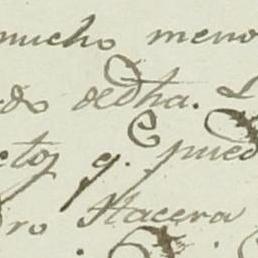 mucho meno
do dedha. L
ctos q. pued
ro Hacera